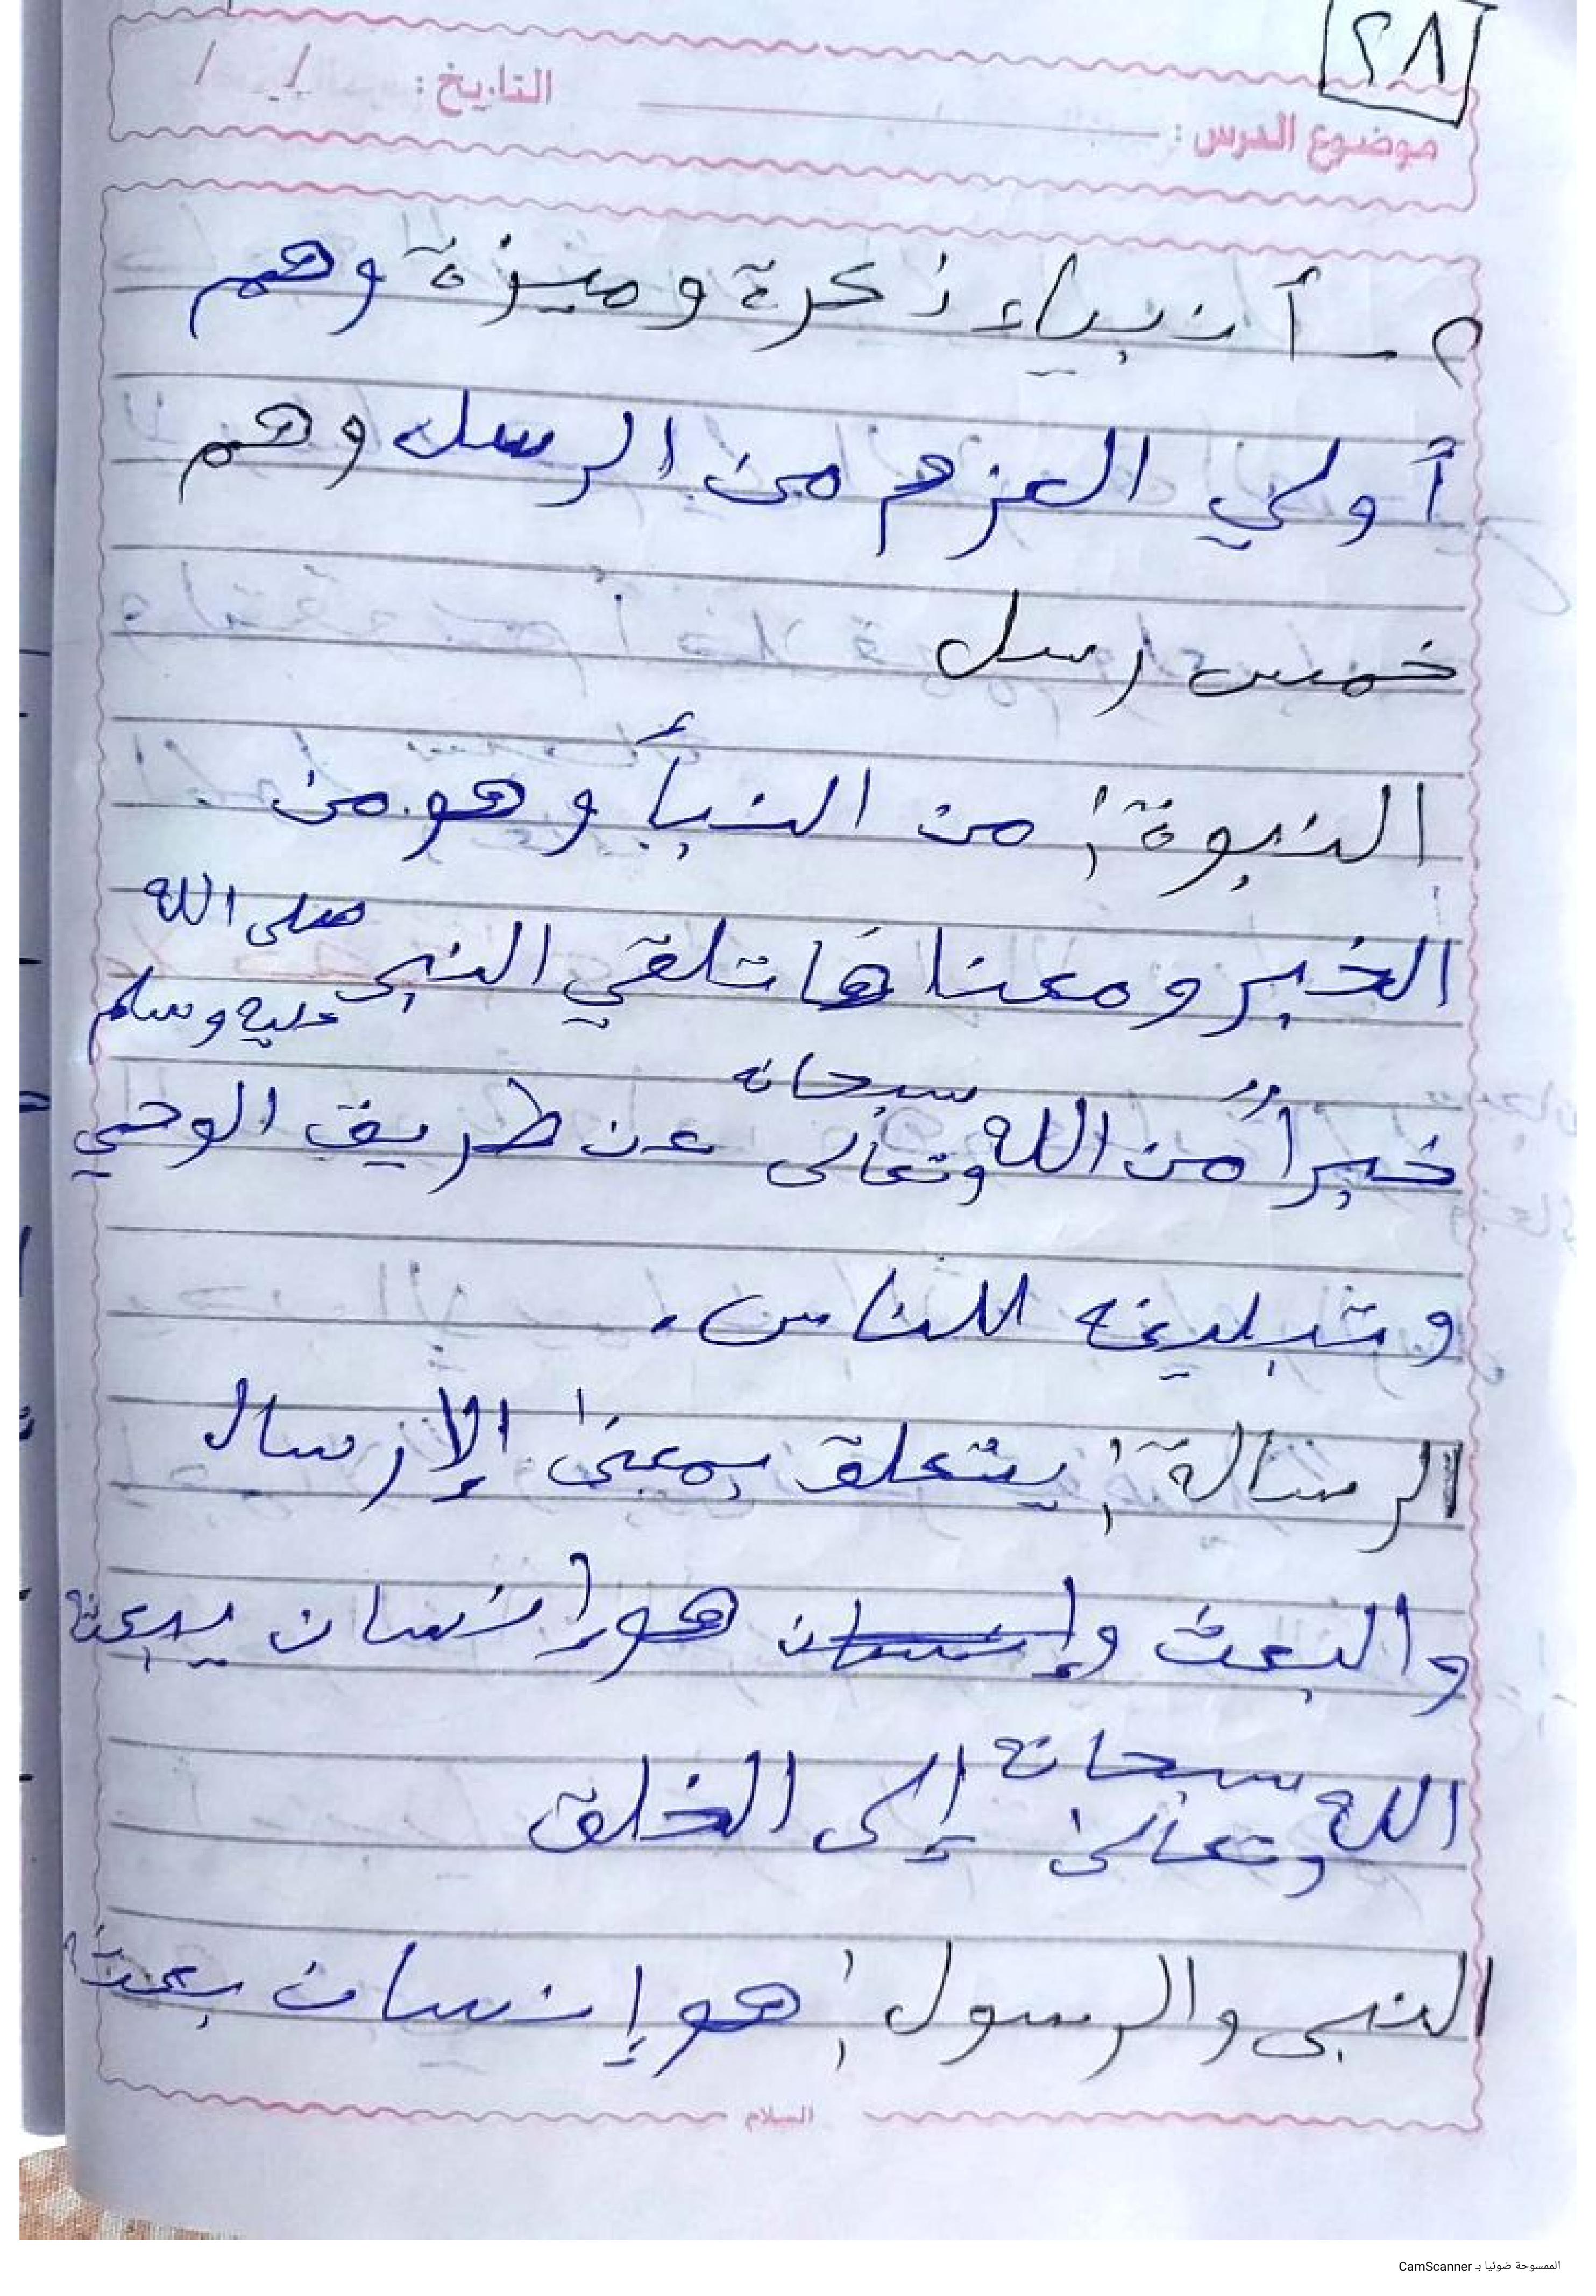 ٢٨
التاريخ : / /
موضوع الدرس :
٢ - أنبياء ذكرة وميزة وهم
أولي العزم من الرسل وهم
خمس رسل
النبوة : من النبأ وهو من
الخبر ومعناها تلقي النبي صلى الله عليه وسلم
خبراً من الله سبحانه وتعالى عن طريق الوحي
وتبليغه للناس .
الرسالة : يتعلق بمعنى الإرسال
والبعث وإنسان هو إنسان يبعثه
الله سبحانه وتعالى إلى الخلق
النبي والرسول : هو إنسان بعثه
السلام
الممسوحة ضوئيا بـ CamScanner